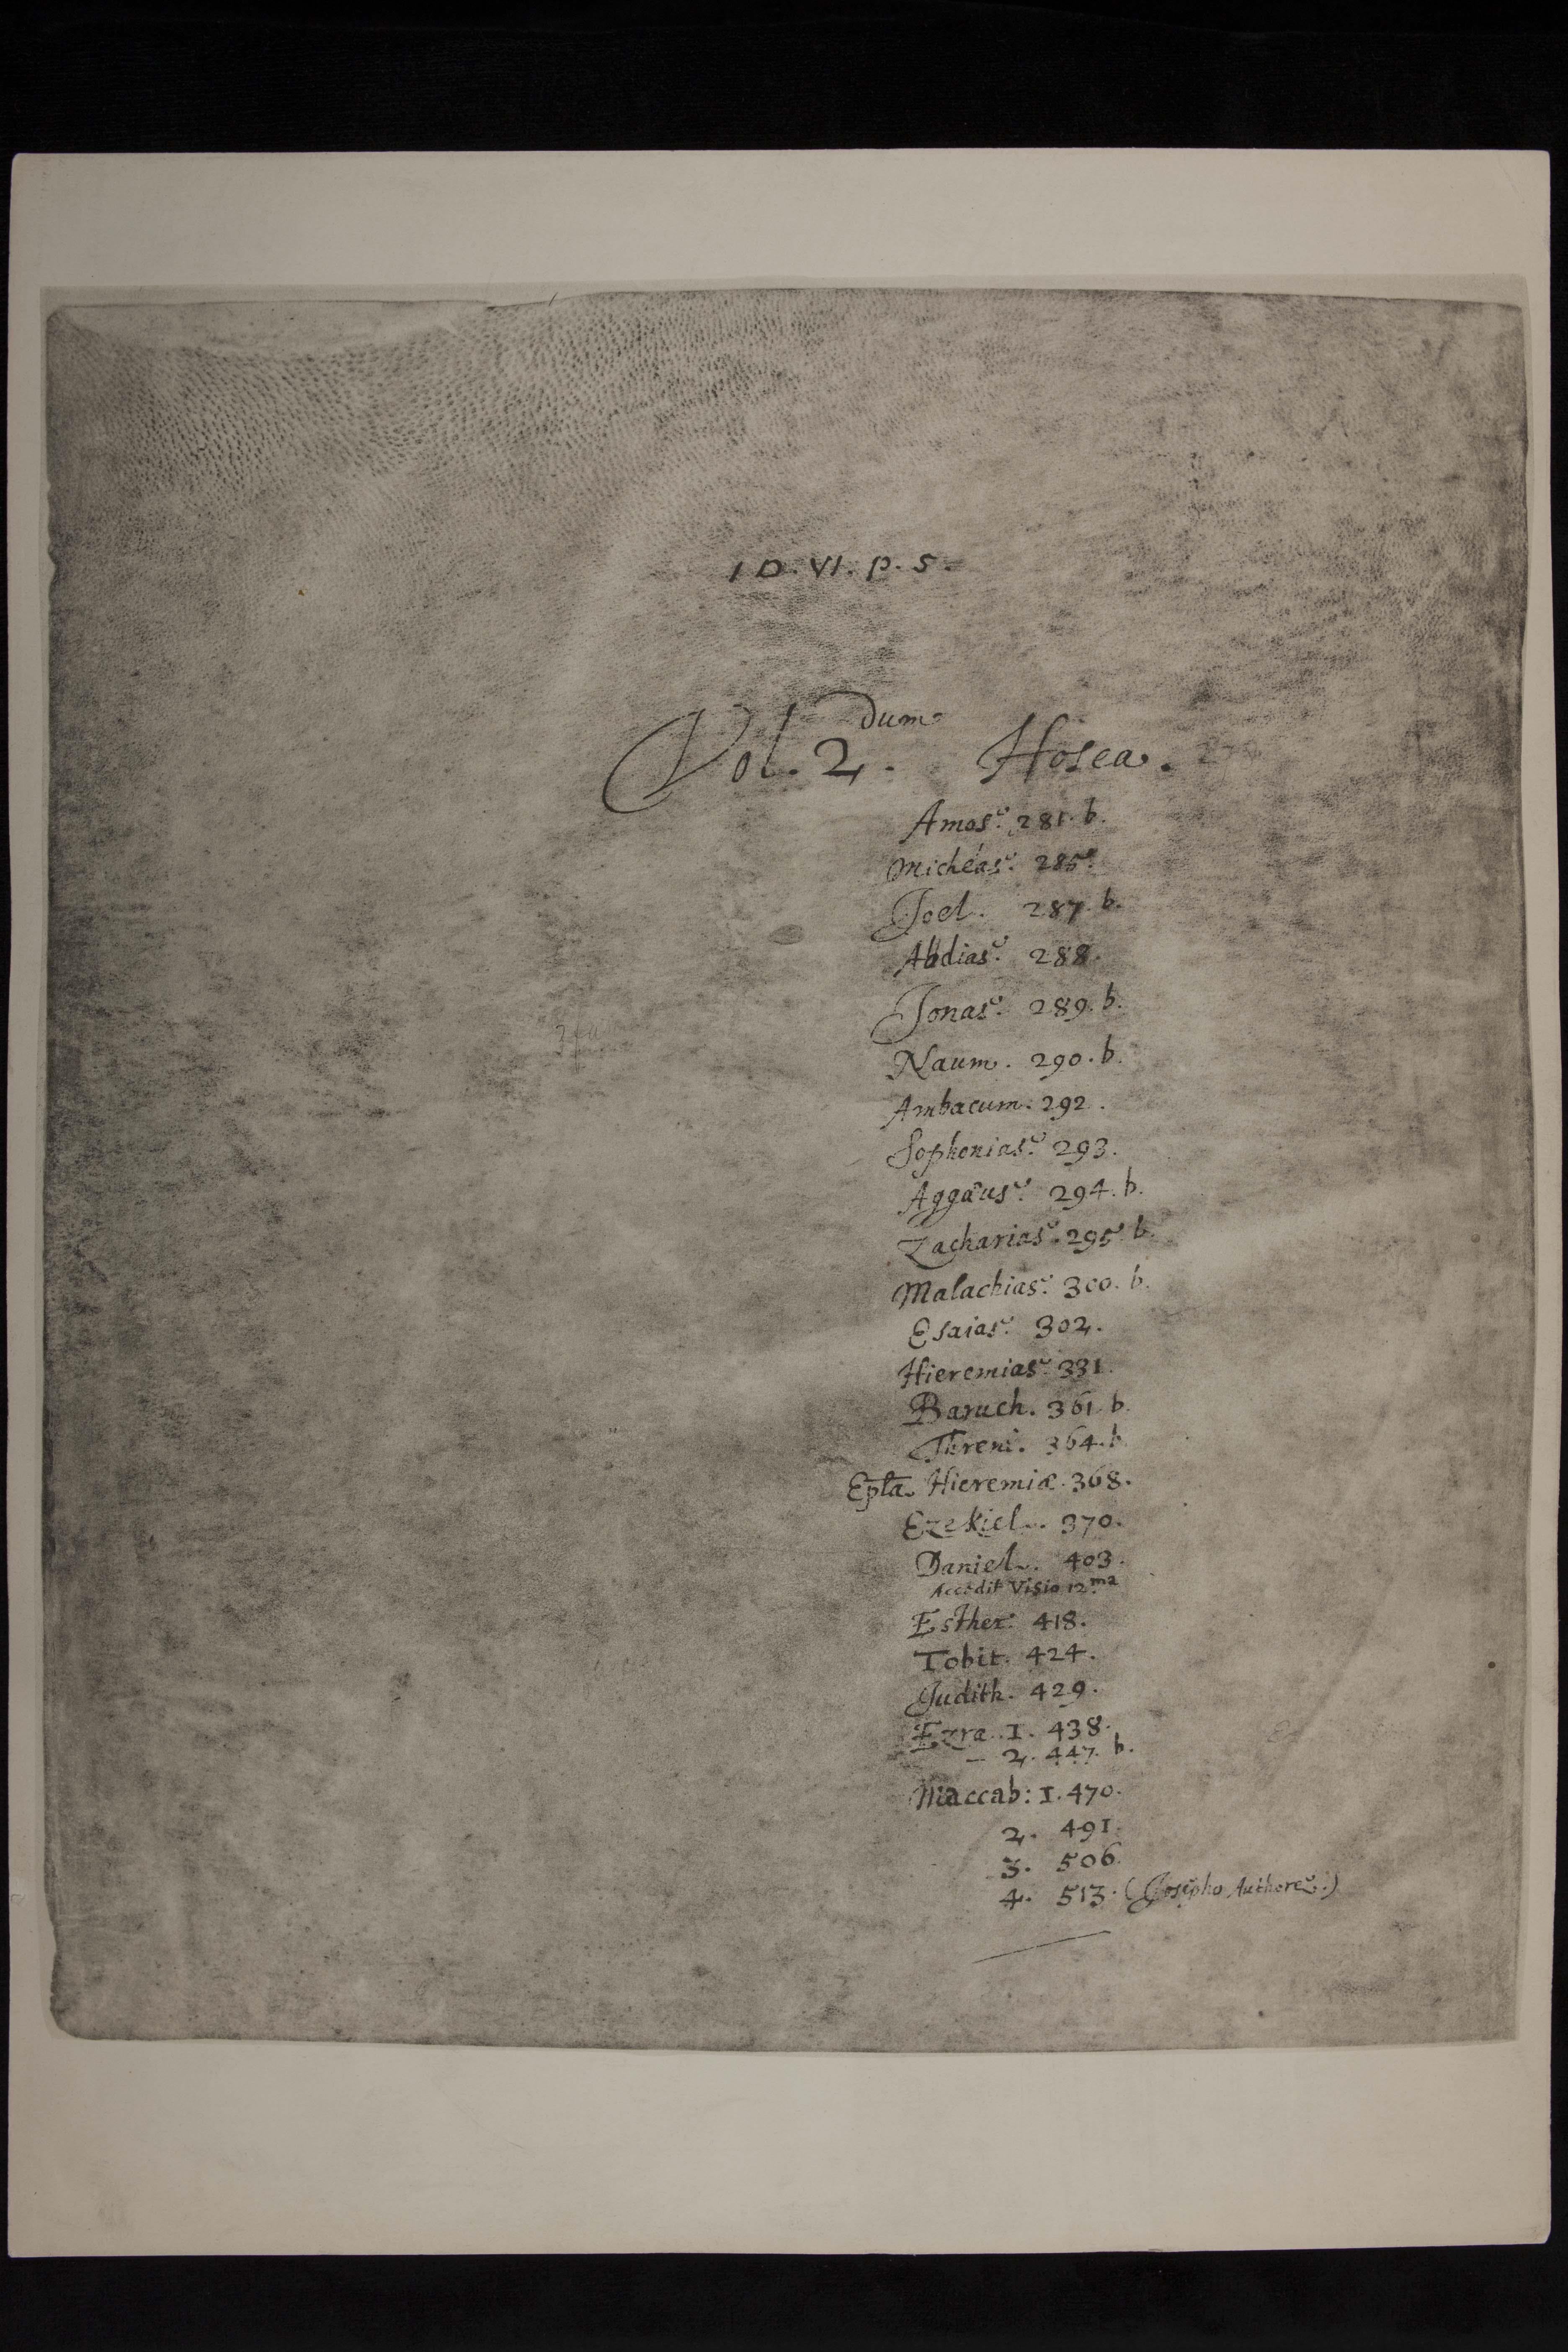 1 D. VI. p. 5.
Vol. 2.dum Hosea.
Amos. 281. b.
Micheas. 285.
Joel. 287. b.
Abdias. 288.
Jonas. 289. b.
Naum. 290. b.
Ambacum. 292.
Sophonias. 293.
Aggæus. 294. b.
Zacharias. 295. b.
Malachias. 300. b.
Esaias. 302.
Hieremias. 331.
Baruch. 361. b.
Threni. 364. b.
Epta. Hieremiæ. 368.
Ezekiel. 370.
Daniel. 403.
Accedit Visio 12.ma
Esther. 418.
Tobit. 424.
Judith. 429.
Ezra. I. 438.
– 2. 447. b.
Maccab: I. 470.
2. 491.
3. 506.
4. 513. (Josepho Authore.)